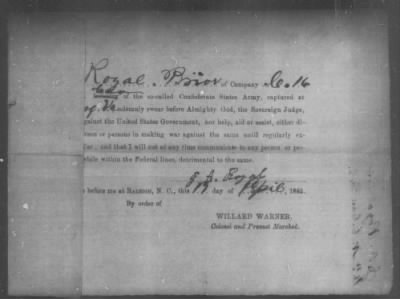 Royal. Prior of Company C. 16
of the so-called Confederate States Army, captured at
solemnly swear before Almighty God, the Sovereign Judge,
against the United States Government, nor help, aid or assist, either di-
rson or persons in making war against the same until regularly ex-
fer; and that I will not at any time communicate to any person or pe
while within the Federal lines, detrimental to the same.
Royal
before me at RALEIGH, N. C., this 19 day of April, 1865.
By order of
WILLARD WARNER,
Colonel and Provost Marshal.